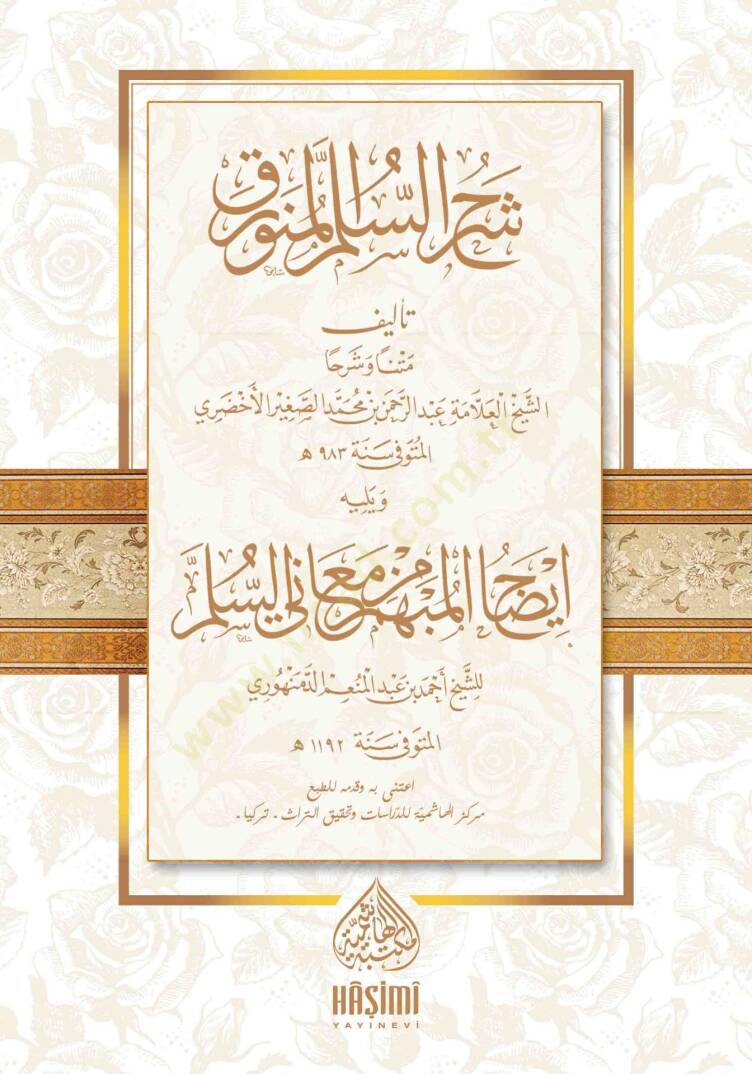 شَرْحُ السُّلَّمِ المُنَوْرَقِ
تأليف
مَتْنًا وَشَرْحًا
الشَّيْخ العَلَّامَةِ عَبْد الرَّحْمَن بْن مُحَمَّد الصَّغِيْر الأَخْضَرِي
المُتَوَفى سَنَة ٩٨٣ هـ
وَيَلِيه
إِيْضَاحُ المُبْهَمِ مِنْ مَعَانِي السُّلَّمِ
لِلشَّيْخ أَحْمَد بْن عَبْد المُنْعِم الدَّمَنْهُورِي
المُتَوَفى سَنَة ١١٩٢ هـ
اعتنى به وقدمه للطبع
مركز الهاشمية للدراسات وتحقيق التراث - تركيا -
مكتبة الهاشمية
HÂŞİMÎ
YAYINEVİ